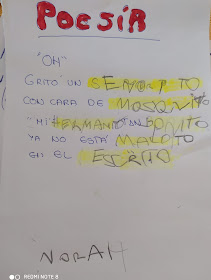 POESÍA
"OH"
GRITÓ UN SEÑORITO
CON CARA DE MOSQUITO
"MI HERMANO TAN BONITO
YA NO ESTÁ MALDITO
EN EL ESCRITO
NORAH
REDMI NOTE 8